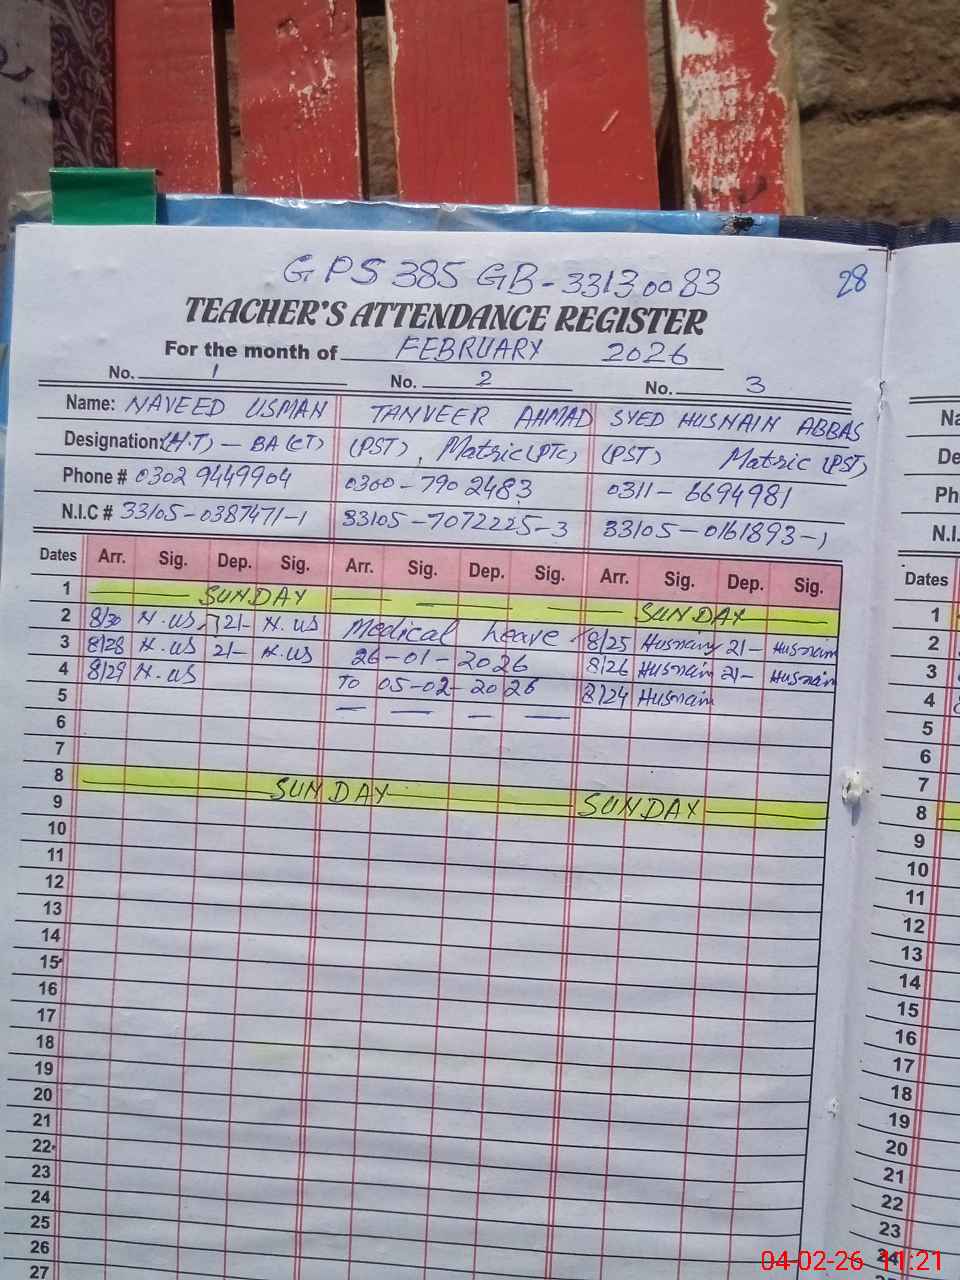 GPS 385 GB - 33130083
28
TEACHER'S ATTENDANCE REGISTER
For the month of FEBRUARY 2026
No. 1 No. 2 No. 3
Name: NAVEED USMAN TANVEER AHMAD SYED HUSNAIN ABBAS
Designation: (H.T) - BA (CT) (PST), Matric (PTC) (PST) Matric (PST)
Phone # 0302 9449904 0360-790 2483 0311-6694981
N.I.C # 33105-0387471-1 33105-7072225-3 33105-0161893-1
Dates Arr. Sig. Dep. Sig. Arr. Sig. Dep. Sig. Arr. Sig. Dep. Sig.
1 SUNDAY SUNDAY
2 8/30 N.US 2/- N.US Medical Leave 8/25 Husnain 2/- Husnain
3 8/28 N.US 2/- N.US 26-01-2026 8/26 Husnain 2/- Husnain
4 8/29 N.US TO 05-02-2026 8/24 Husnain
5
6
7
8 SUNDAY SUNDAY
9
10
11
12
13
14
15
16
17
18
19
20
21
22
23
24
25
26
27
Na
De
Ph
N.I.
Dates
1
2
3
4
5
6
7
8
9
10
11
12
13
14
15
16
17
18
19
20
21
22
23
24
04-02-26 11:21